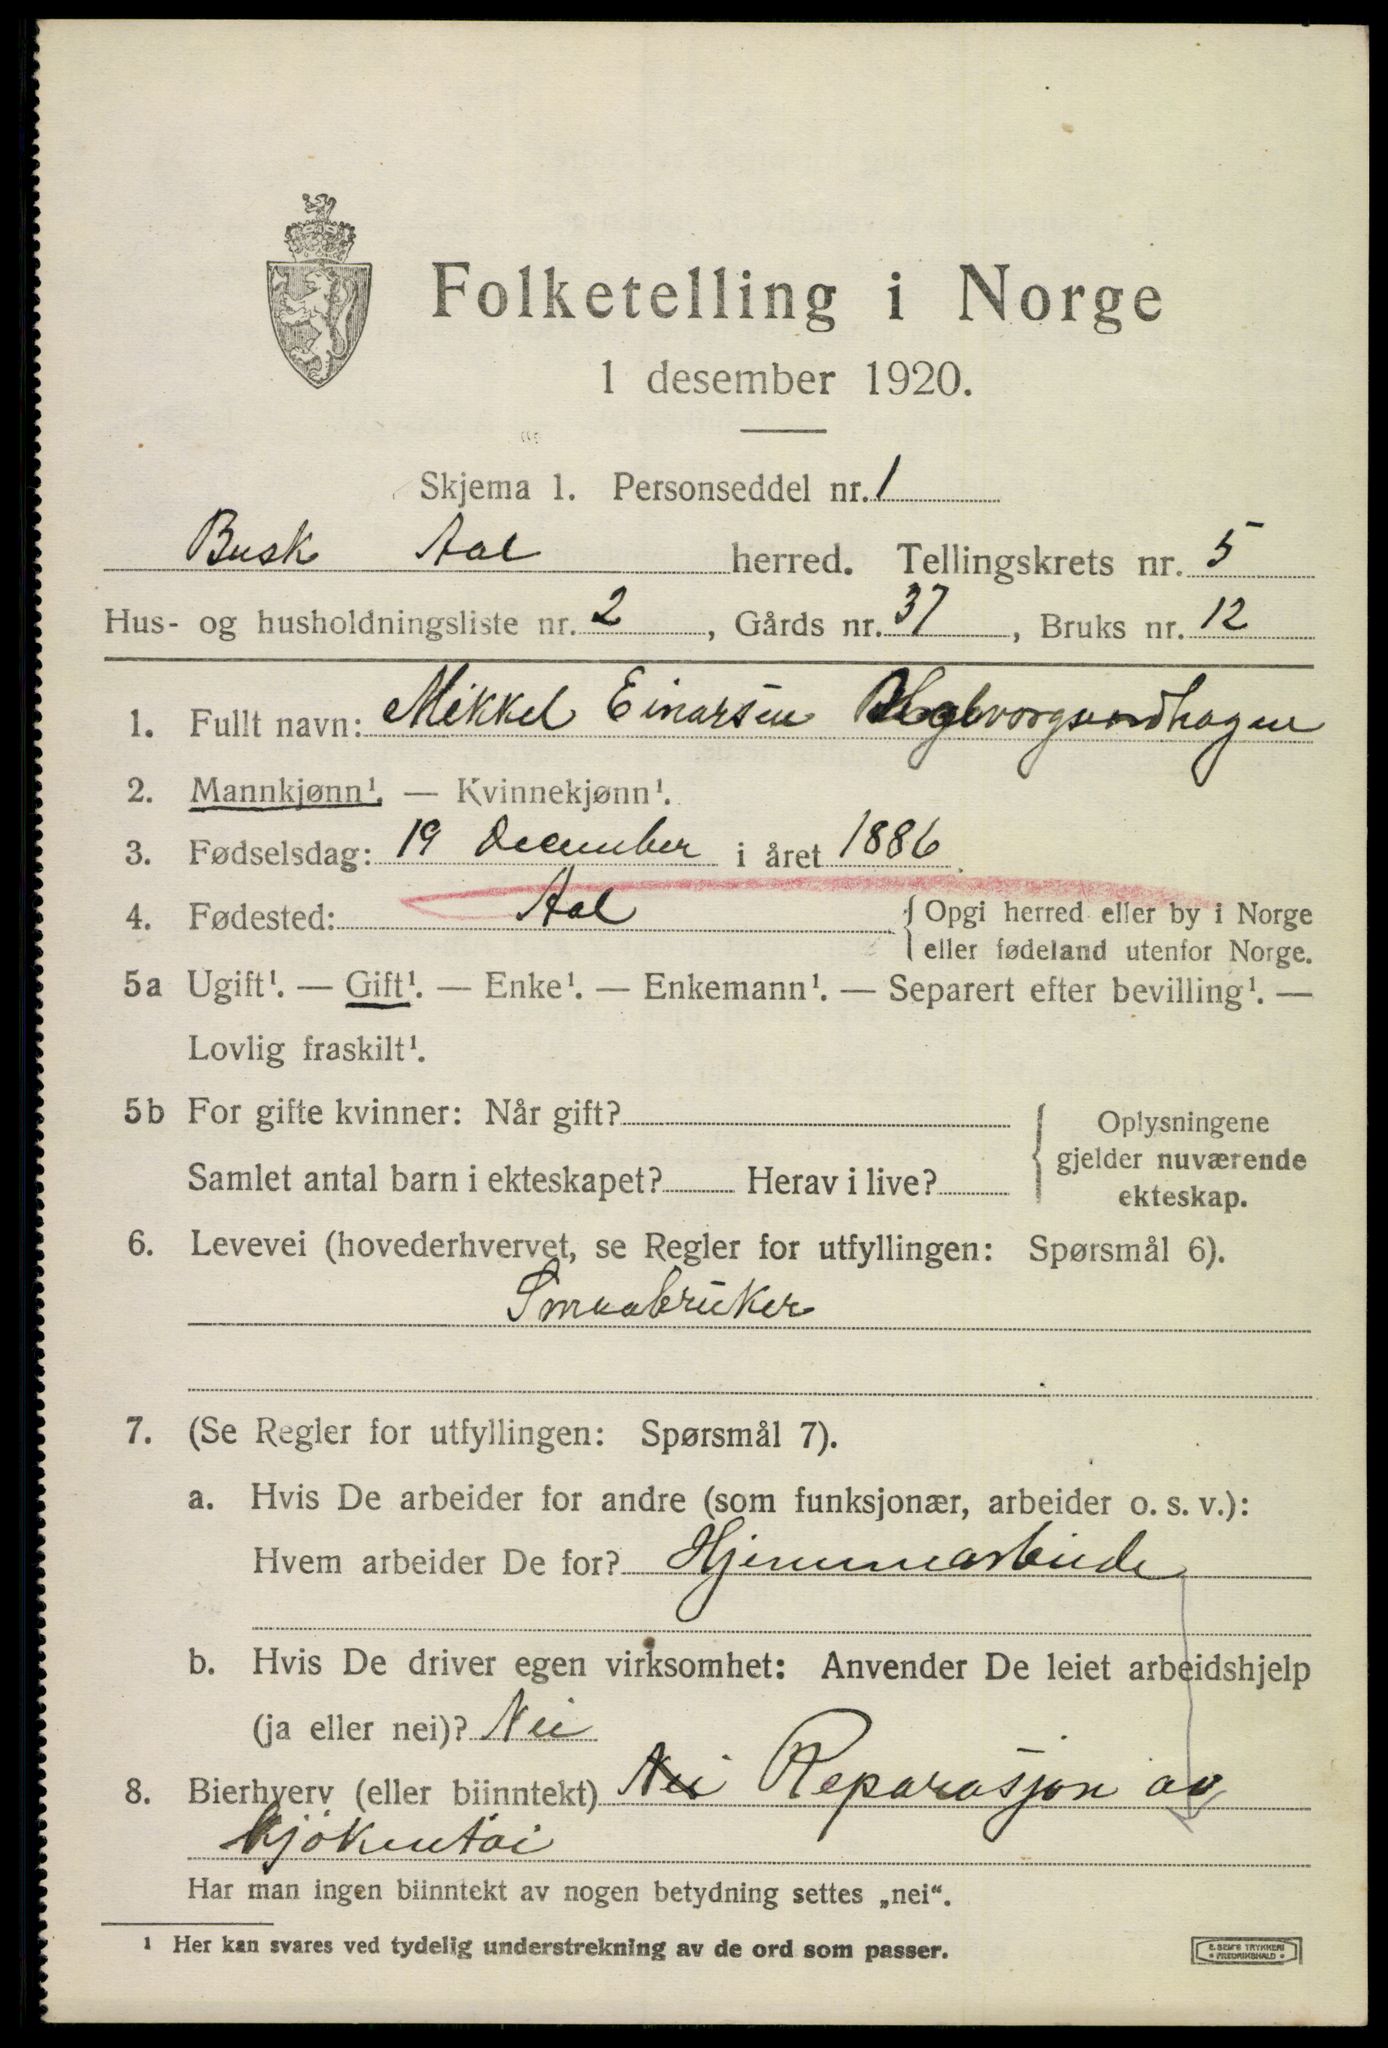 Folketelling i Norge
1 desember 1920.
Skjema 1. Personseddel nr. 1
Busk Aal herred. Tellingskrets nr. 5
Hus- og husholdningsliste nr. 2, Gårds nr. 37, Bruks nr. 12
1. Fullt navn: Mikkel Einarsen
2. Mannkjønn¹. — Kvinnekjønn¹.
3. Fødselsdag: 19 december i året 1886
4. Fødested: Aal { Opgi herred eller by i Norge
eller fødeland utenfor Norge.
5a Ugift¹. — Gift¹. — Enke¹. — Enkemann¹. — Separert efter bevilling¹. —
Lovlig fraskilt¹.
5b For gifte kvinner: Når gift? { Oplysningene
gjelder nuværende
Samlet antal barn i ekteskapet? Herav i live? ekteskap.
6. Levevei (hovederhvervet, se Regler for utfyllingen: Spørsmål 6).
Smaabruker
7. (Se Regler for utfyllingen: Spørsmål 7).
a. Hvis De arbeider for andre (som funksjonær, arbeider o. s. v.):
Hvem arbeider De for? Hjemmearbeide
b. Hvis De driver egen virksomhet: Anvender De leiet arbeidshjelp
(ja eller nei)? Nei
8. Bierhverv (eller biinntekt) Nei Reparasjon av
kjökentöi
Har man ingen biinntekt av nogen betydning settes „nei“.
¹ Her kan svares ved tydelig understrekning av de ord som passer.
E. SEM'S TRYKKERI
FREDRIKSHALD